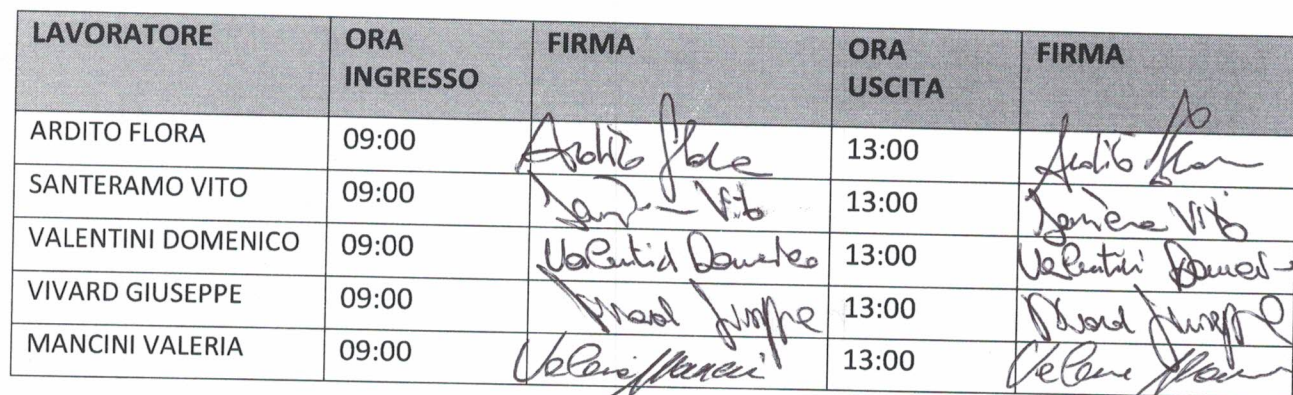 LAVORATORE ORA INGRESSO FIRMA ORA USCITA FIRMA
ARDITO FLORA 09:00 Ardito Flora 13:00 Ardito
SANTERAMO VITO 09:00 Vito 13:00 Vito
VALENTINI DOMENICO 09:00 Valentini Domenico 13:00 Valentini
VIVARD GIUSEPPE 09:00 Giuseppe 13:00 Giuseppe
MANCINI VALERIA 09:00 Valeria Mancini 13:00